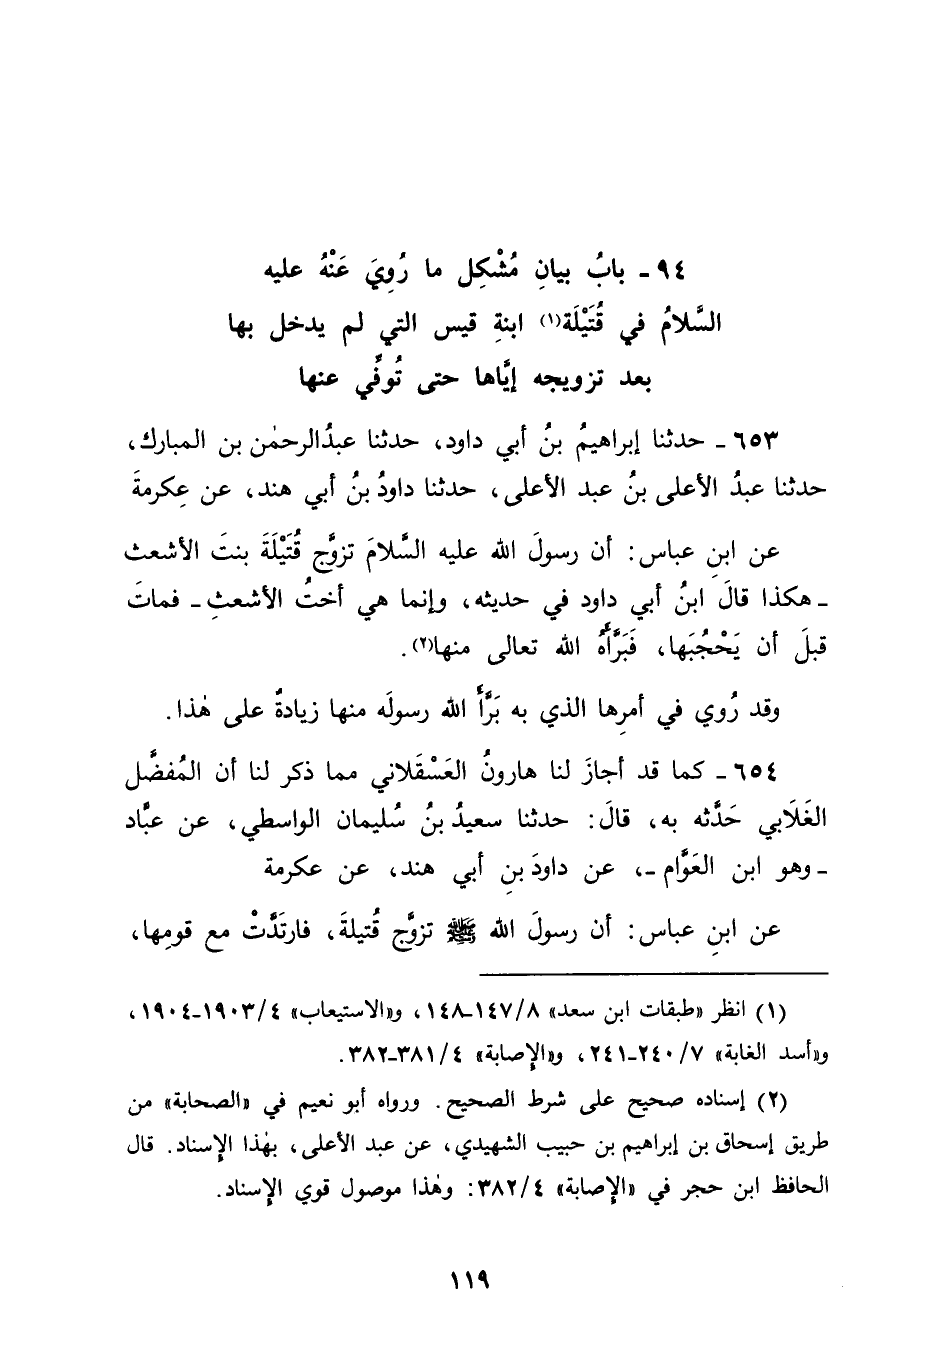 ٩٤ ـ بابُ بيانِ مُشْكِل ما رُوِيَ عَنْهُ عليه
السَّلامُ في قُتَيْلَة(١) ابنةِ قيس التي لم يدخل بها
بعد تزويجه إيَّاها حتى تُوفِّي عنها
٦٥٣ ـ حدثنا إبراهيمُ بنُ أبي داود، حدثنا عبدُالرحمٰن بن المبارك،
حدثنا عبدُ الأعلى بنُ عبد الأعلى، حدثنا داودُ بنُ أبي هند، عن عِكرمةَ
عن ابنِ عباس: أن رسولَ الله عليه السَّلامَ تزوَّج قُتَيْلَةَ بنتَ الأشعث
ـ هكذا قالَ ابنُ أبي داود في حديثه، وإنما هي أختُ الأشعثِ ـ فماتَ
قبلَ أن يَحْجُبَها، فَبَرَّأَهُ الله تعالى منها(٢).
وقد رُوي في أمرِها الذي به بَرَّأَ الله رسولَه منها زيادةٌ على هٰذا.
٦٥٤ ـ كما قد أجازَ لنا هارونُ العَسْقَلاني مما ذكر لنا أن المُفضَّل
الغَلَابي حَدَّثه به، قالَ: حدثنا سعيدُ بنُ سُليمان الواسطي، عن عبَّاد
ـ وهو ابن العَوَّام ـ، عن داودَ بنِ أبي هند، عن عكرمة
عن ابنِ عباس: أن رسولَ الله ﷺ تزوَّج قُتيلةَ، فارتَدَّتْ مع قومِها،
(١) انظر «طبقات ابن سعد» ١٤٧/٨ـ١٤٨، و«الاستيعاب» ١٩٠٣/٤ـ١٩٠٤،
و«أسد الغابة» ٢٤٠/٧ـ٢٤١، و«الإصابة» ٣٨١/٤ـ٣٨٢.
(٢) إسناده صحيح على شرط الصحيح. ورواه أبو نعيم في «الصحابة» من
طريق إسحاق بن إبراهيم بن حبيب الشهيدي، عن عبد الأعلى، بهٰذا الإسناد. قال
الحافظ ابن حجر في «الإصابة» ٣٨٢/٤: وهٰذا موصول قوي الإسناد.
١١٩